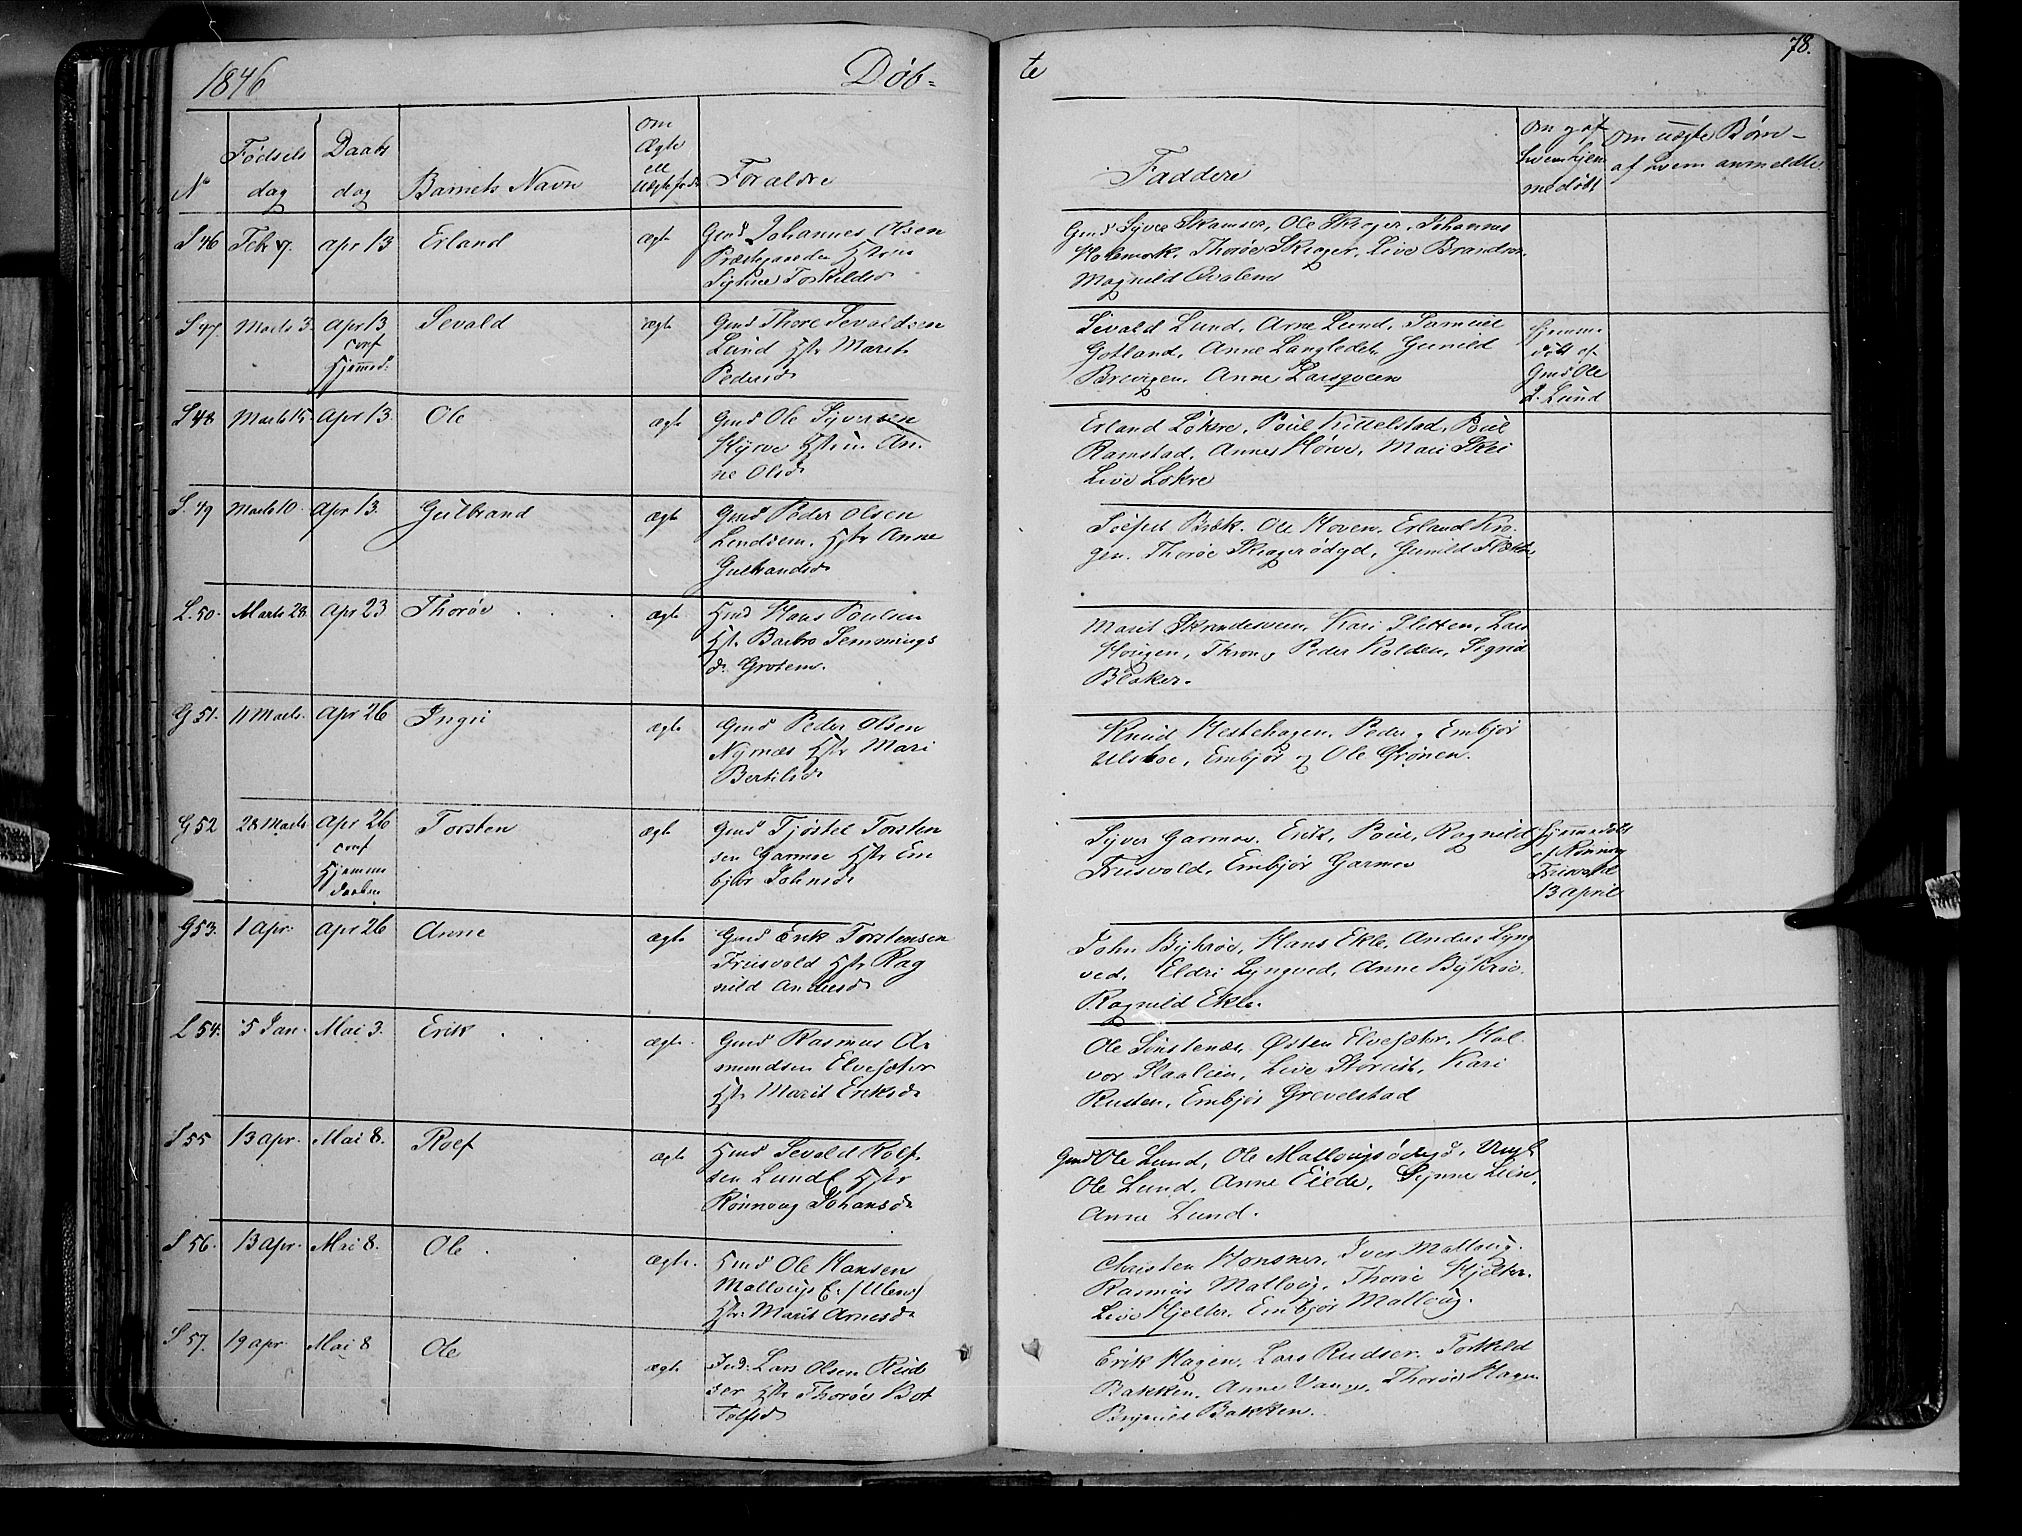 1846 Døb-
te 78.
No
Fødsels
dag
Daabs
dag
Barnets Navn
om
Ægte
ell
Uægtefød
Forældre
Faddere
Om og af
hvem hjem
medøbt
Om uægte Børn
af hvem anmeldte
S 46 Feb 7. Apr 13 Erland ægte
Gmd Johannes Olsen
Præstegaarden Hstru
Signe Torkildsd
Gmd Syver Skamser, Ole Skrager, Johannes
Holemork, Thorøe Skrager, Live Brandsar
Magnild Qvalen
S 47. Marts 3. Apr 13
conf
hjemmed:
Sevald ægte
Gmd Thore Sevaldsen
Lund Hstr Marit
Pedersd
Sevald Lund, Arne Lund, Samuel
Gotland, Anne Langledet, Gunild
Brevigen. Anne Larsgveen
hjemme
døbt af
Gmd Ole
S. Lund
S 48 Marts 15. Apr 13. Ole ægte
Gmd Ole Syversen
Hyrve Hstru An
ne Olsd
Erland Løkre, Poul Kittelstad, Poul
Ramstad, Annes Hørve, Mari Skei
Live Løkre
S. 49 Marts 10. Apr 13. Gulbrand ægte
Gmd Peder Olsen
Lendsem. Hstr Anne
Gulbrandsd
Toefed Bræk. Ole Hoven, Erland Kro-
gen. Thorøe Skragerødegd, Gunild Flækk
L. 50. Marts 28. Apr 23 Thorøe ægte
Hmd Hans Poulsen
Hst. Barbro Semmings
d. Grotem.
Marit Skrædesveen, Kari Sletten, Lars
Hougen, Thron og Peder Kolden, Sigrid
Blaker.
G 51. 11 Marts. Apr 26 Ingri ægte
Gmd Peder Olsen
Nyrnæs Hstr Mari
Bertilsd
Knud Hestehagen, Peder og Embjør
Ulstoe, Embjør og Ole Grønen.
G 52 28 Marts Apr 26
conf
hjemme
daaben
Torsten ægte
Gmd Tjøstel Torsten
sen Garmoe Hstr Em
bjør Johnsd
Syver Garmoe. Erik, Poul, Ragnild
Friisvold, Embjør Garmoe
hjemmedøbt
af Rønnoug
Friisvold
13 April
G 53. 1 Apr. Apr 26 Anne ægte
Gmd Erik Torstensen
Friisvold Hstr Rag
nild Andersd
John Bykrøe, Hans Ekle, Anders Lyng
ved, Eldri Lyngved, Anne Bykrøe.
Ragnild Ekle.
L 54. 5 Jan. Mai 3. Erik ægte.
Gmd Rasmus A
mundsen Elvesæter
Hst. Marit Eriksd.
Ole Sønstenæs, Østen Elvesæter, Hal
vor Slaalien, Live Storrist, Kari
Rusten, Embjør Grevelstad
S 55 13 Apr. Mai 8. Rolf ægte
Hmd Sevald Rolf
sen Lund Hstr
Rønnoug Johansd.
Gmd Ole Lund, Ole Mallougsødegd, Ungk
Ole Lund. Anne Eilde, Synne Lien.
Anne Lund.
S 56. 13 Apr. Mai 8. Ole ægte.
Hmd Ole Hansen
Mallougs E. (Ulen)
Hstr. Marit Arnesd.
Christen Honsner, Iver Malloug.
Rasmus Malloug, Thorøe Hjelter.
Live Hjelter. Embjør Malloug.
S 57. 19 Apr. Mai 8 Ole ægte
Ind. Lars Olsen Rud
ser Hstr Thorøe Bot
tolfsd
Erik Hagen, Lars Rudser. Torkild
Bakken, Anne Vange, Thorøe Hagen
Brynild Bakken.